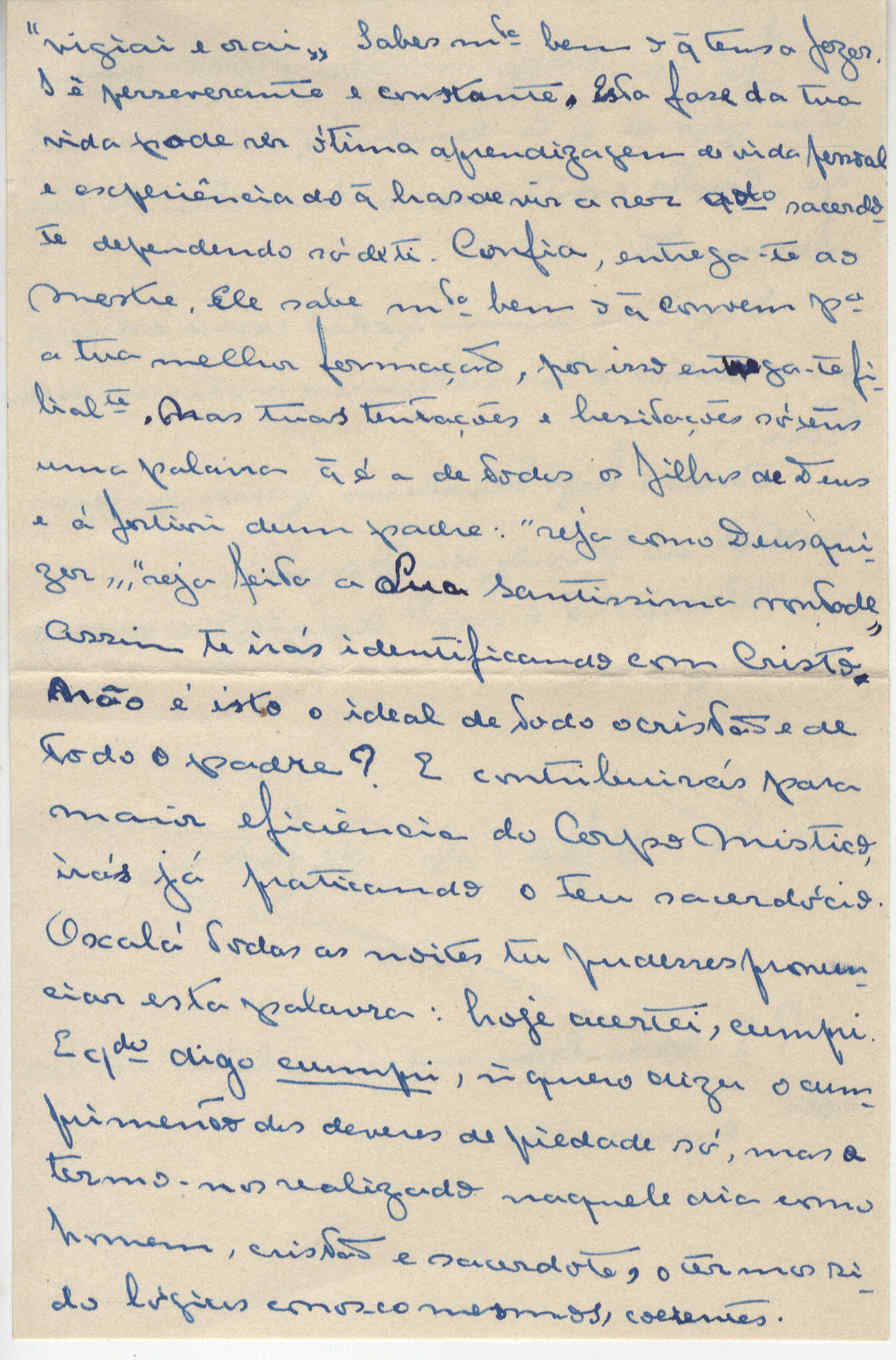 "vigiai e orai,, Sabes mto bem o q̃ tens a fazer.
Sê perseverante e constante. Esta fase da tua
vida pode ser ótima aprendizagem de vida pessoal
e experiência do q̃ has de vir a ser qdo sacerdo-
te dependendo só de ti. Confia, entrega-te ao
Mestre. Ele sabe mto bem o q̃ convem pa
a tua melhor formação, por isso entrega-te fi-
lialte. Nas tuas tentações e hesitações só tens
uma palavra q̃ é a de todos os filhos de Deus
e á fortiori dum padre: "seja como Deus qui-
zer,,, "seja feita a Sua Santissima vontade,,
Assim te irás identificando com Cristo.
Não é isto o ideal de todo o cristão e de
todo o padre? E contribuirás para
maior eficiência do Corpo Mistico,
irás já praticando o teu sacerdócio.
Oxalá todas as noites tu pudesses pronun-
ciar esta palavra: hoje acertei, cumpri.
E qdo digo cumpri, ñ quero dizer o cum-
primento dos deveres de piedade só, mas o
termo-nos realizado naquele dia como
homem, cristão e sacerdote, o termos si-
do lógicos conosco mesmos, coerentes.